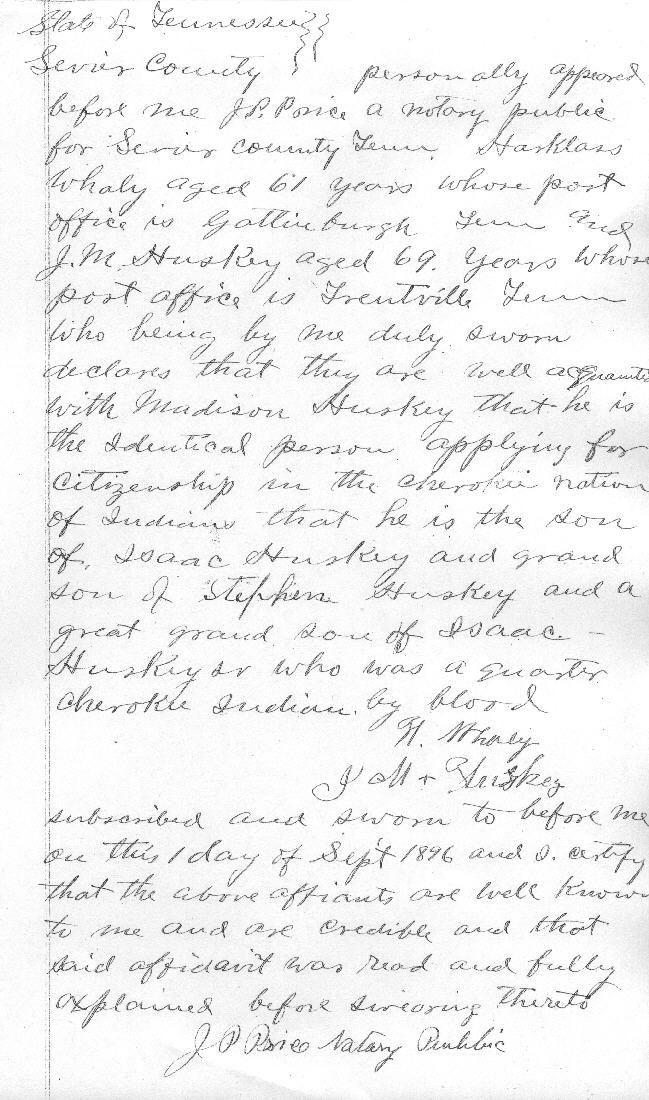 State of Tennessee }}
Sevier County } personally appeared
before me J.P. Price a notary public
for Sevier county Tenn. Harklass
Whaly aged 61 years whose post
office is Gatlinburgh Tenn and
J.M. Huskey aged 69. years whose
post office is Trentville Tenn
who being by me duly sworn
declares that they are well acquantid
with Madison Huskey that he is
the Identical person applying for
citizenship in the cherokie nation
of Indians that he is the son
of, Isaac Huskey and grand
son of Stephen Huskey and a
great grand son of Isaac -
Huskey sr who was a quarter
cherokie Indian by blood
H. Whaley
J M + Huskey
subscribed and sworn to before me
on this 1 day of Sept 1896 and I. certify
that the above affiants are well known
to me and are credible and that
said affidavit was read and fully
explained before swearing thereto
J P Price Notary Public